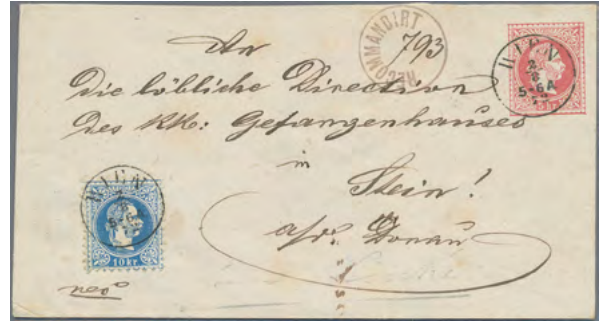 RECOMMANDIRT
793
An
WIEN
2
8
5-6A
73
5 kr.
Die löbliche Direction
des KK: Gefangenhauses
in
Stein!
a/d. Donau
WIEN
5-6A
10 kr.